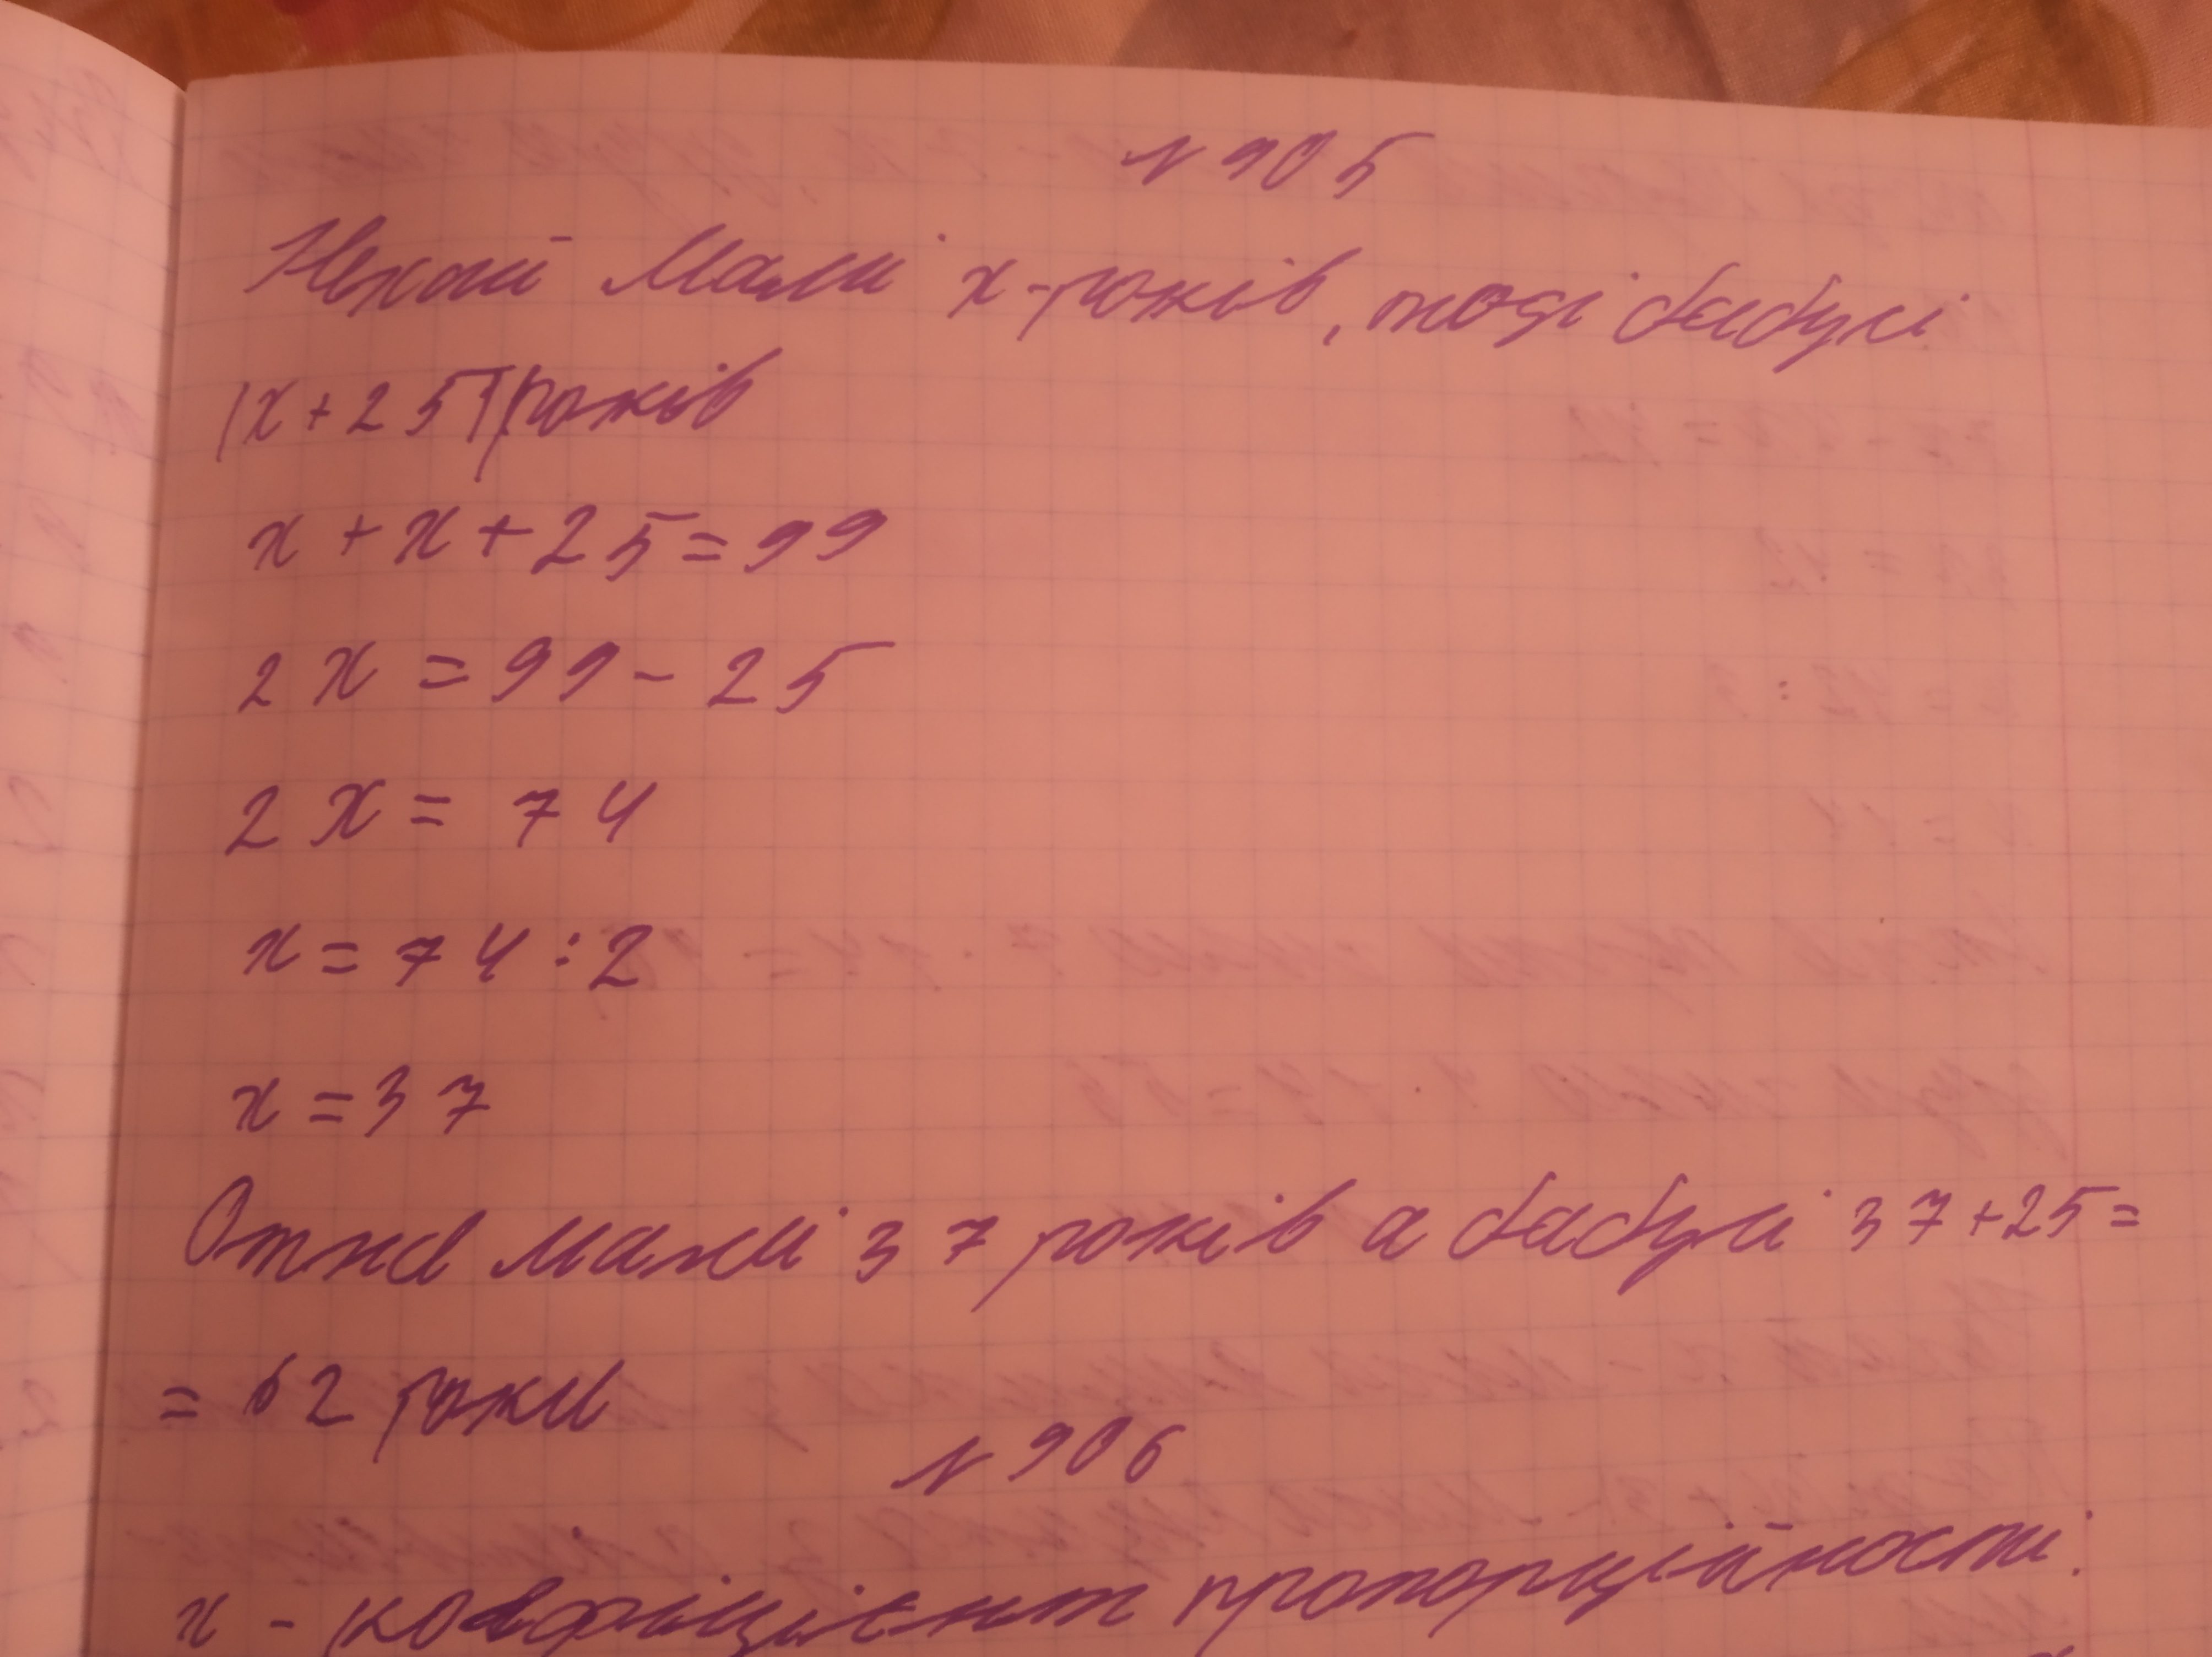 № 905
Нехай Мамі x-років, тоді бабусі
(x+25) років
x + x + 25 = 99
2x = 99 - 25
2x = 74
x = 74 : 2
x = 37
Отже мамі 37 років а бабусі 37+25=
= 62 роки
№ 906
x - коефіцієнт пропорційності.